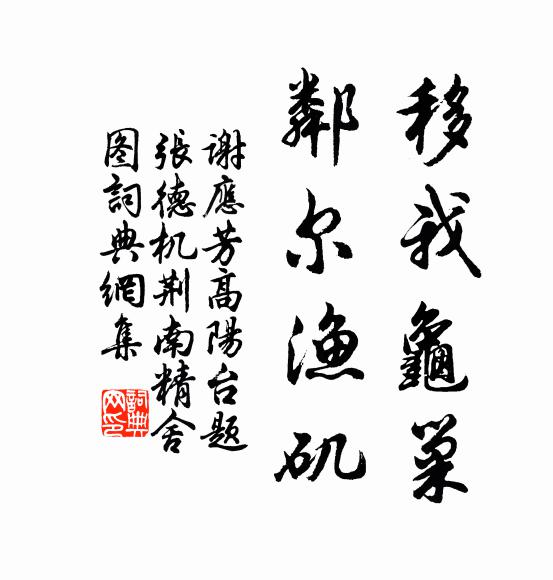 移我龜巢
鄰尔渔矶
谢應芳高陽台题
張德机荆南精舍
图詞典網集
詞典网印